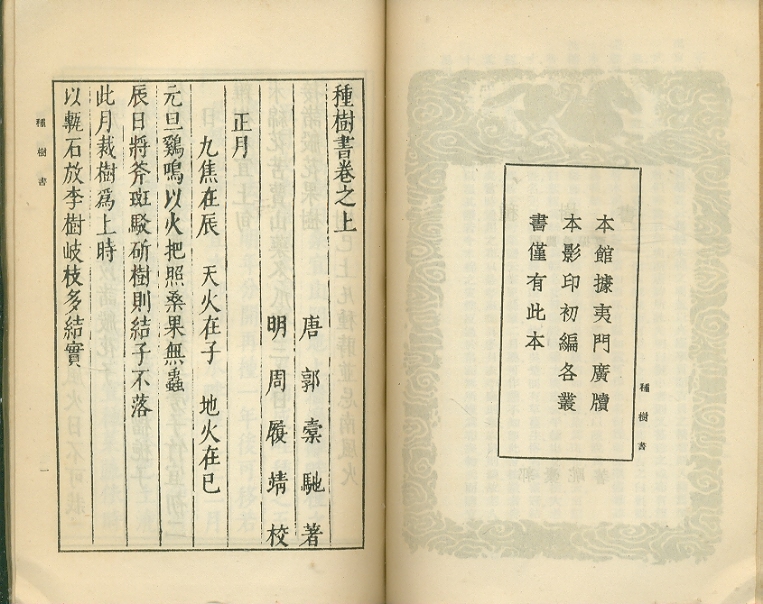 本館據夷門廣牘
本影印初編各叢
書僅有此本
種樹書
種樹書卷之上
唐郭橐馳著
明周履靖校
正月
九焦在辰 天火在子 地火在巳
元旦鷄鳴以火把照桑果無蟲
辰日將斧斑駁斫樹則結子不落
此月栽樹爲上時
以甎石放李樹岐枝多結實
種樹書
一